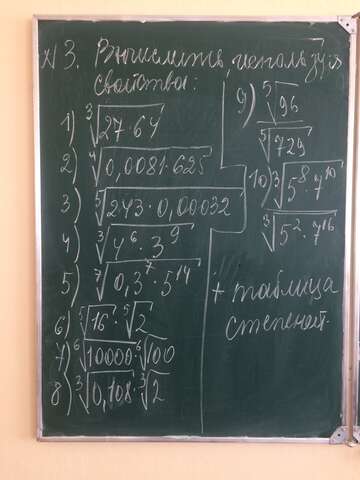 N 3. Вычислить, используя
свойства:
1) ∛27·64
2) ∜0,0081·625
3) ⁵√243·0,00032
4) ∛4⁶·3⁹
5) ⁷√0,3⁷·5¹⁴
6) ⁵√16·⁵√2
7) ⁶√10000·⁶√100
8) ∛0,108·∛2
9) ⁵√96
⁵√729
10) ∛5⁸·7¹⁰
∛5²·7¹⁶
+ таблица
степеней.